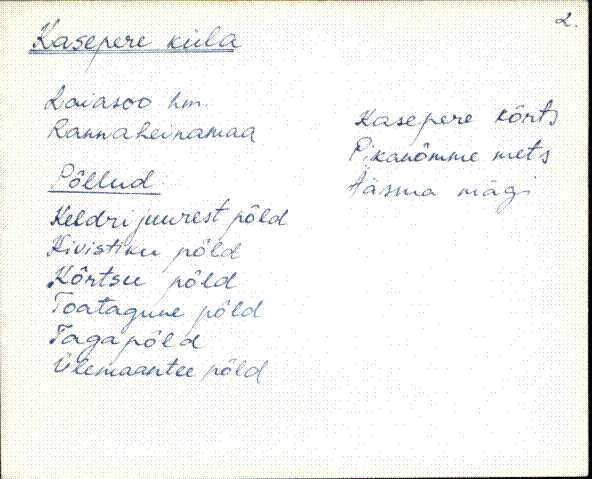 2.
Kasepere küla
Laiasoo hm.
Rannaheinamaa
Põllud
Keldrijuurest põld
Kivistiku põld
Kõrtsu põld
Toatagune põld
Tagapõld
Ülemaantee põld
Kasepere kõrts
Pikanõmme mets
Ääsma mägi